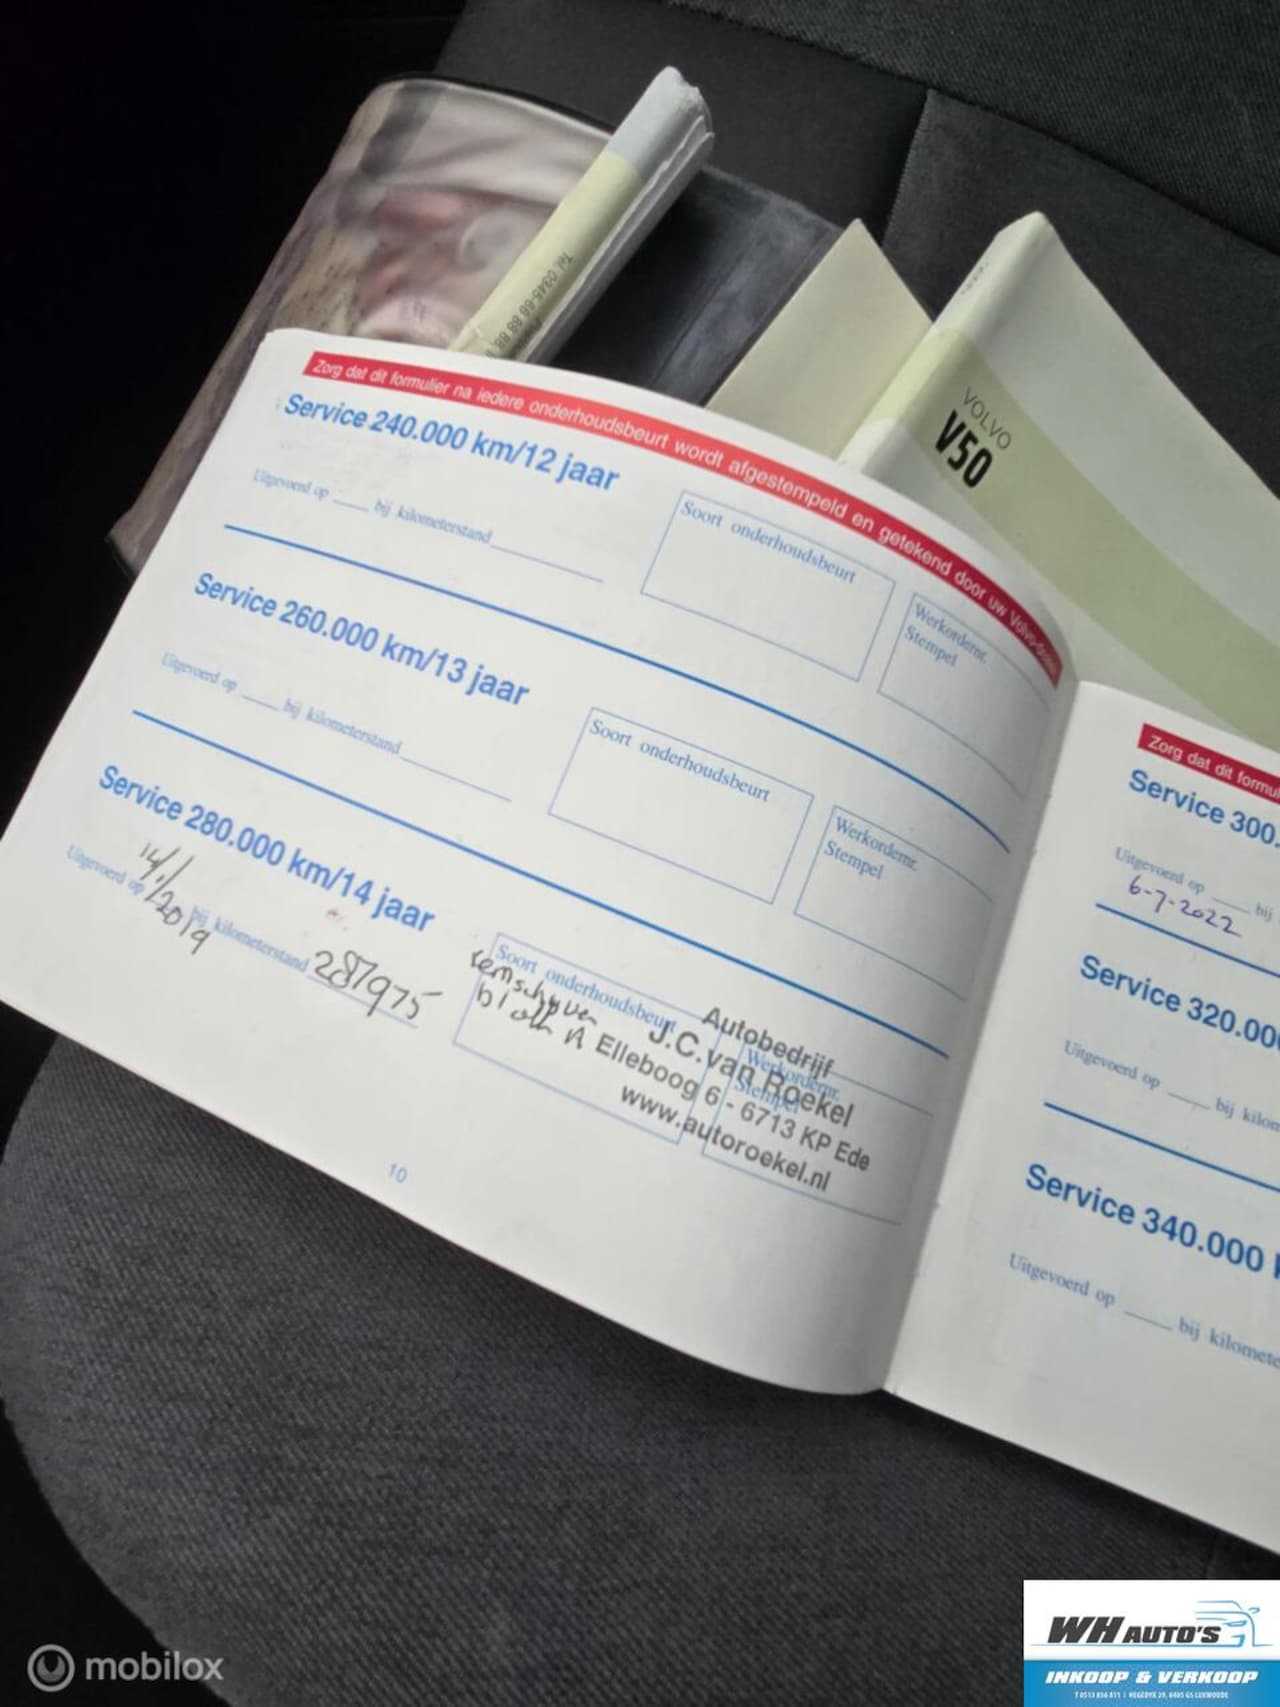 Tel. 0345-68 88 88
VOLVO
V50
Zorg dat dit formulier na iedere onderhoudsbeurt wordt afgestempeld en getekend door uw Volvo-dealer
Service 240.000 km/12 jaar
Uitgevoerd op ____ bij kilometerstand
Soort onderhoudsbeurt
Werkordernr.
Stempel
Service 260.000 km/13 jaar
Uitgevoerd op ____ bij kilometerstand
Soort onderhoudsbeurt
Werkordernr.
Stempel
Service 280.000 km/14 jaar
Uitgevoerd op bij kilometerstand 287975
2019
Soort onderhoudsbeurt
remschyven
Werkordernr.
Stempel
Autobedrijf
J.C. van Roekel
Elleboog 6 - 6713 KP Ede
www.autoroekel.nl
10
Zorg dat dit formul
Service 300.
Uitgevoerd op ____ bij
6-7-2022
Service 320.00
Uitgevoerd op ____ bij kilom
Service 340.000
Uitgevoerd op ____ bij kilomete
mobilox
WH AUTO'S
INKOOP & VERKOOP
T 0513 856 811 | HEGEDYK 29, 8405 GS LUXWOUDE